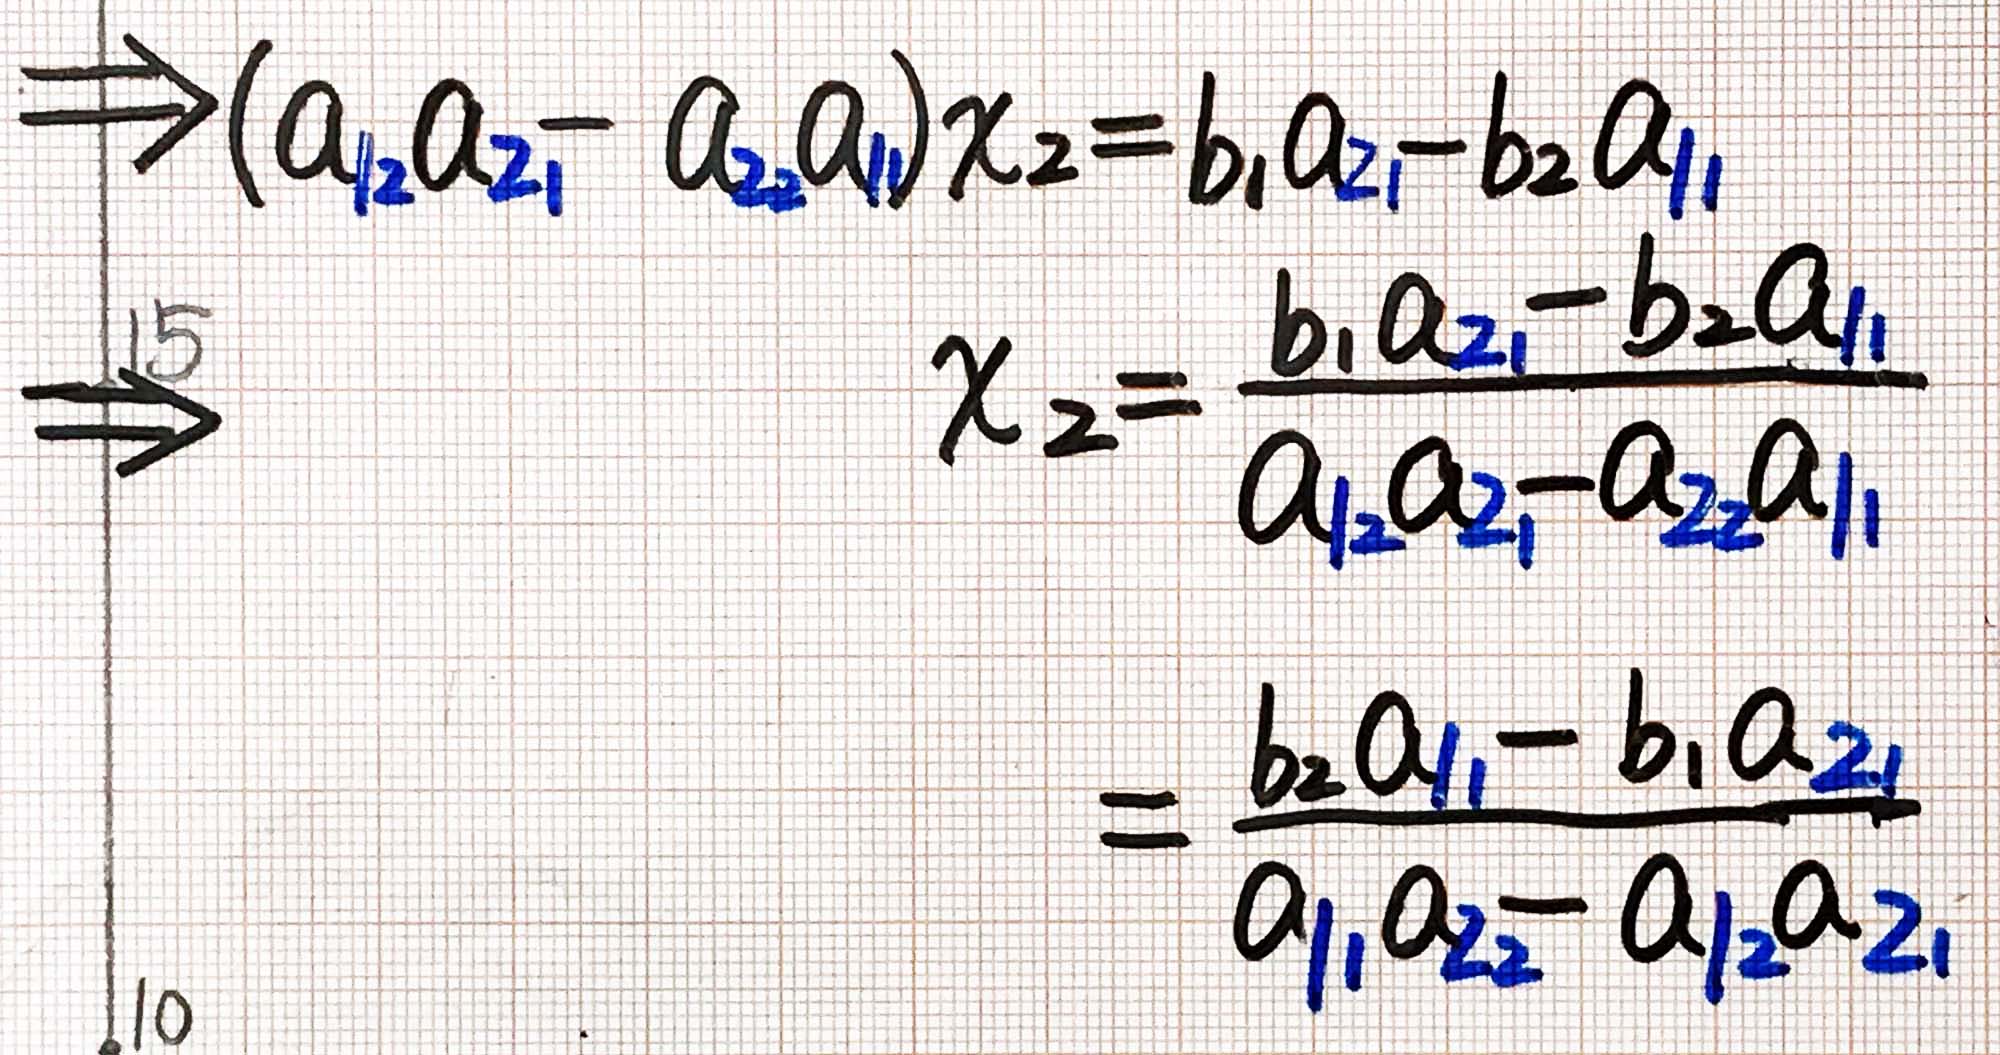 ⇒(a₁₂a₂₁ − a₂₂a₁₁)x₂ = b₁a₂₁ − b₂a₁₁
15
⇒ x₂ = (b₁a₂₁ − b₂a₁₁) / (a₁₂a₂₁ − a₂₂a₁₁)
= (b₂a₁₁ − b₁a₂₁) / (a₁₁a₂₂ − a₁₂a₂₁)
10